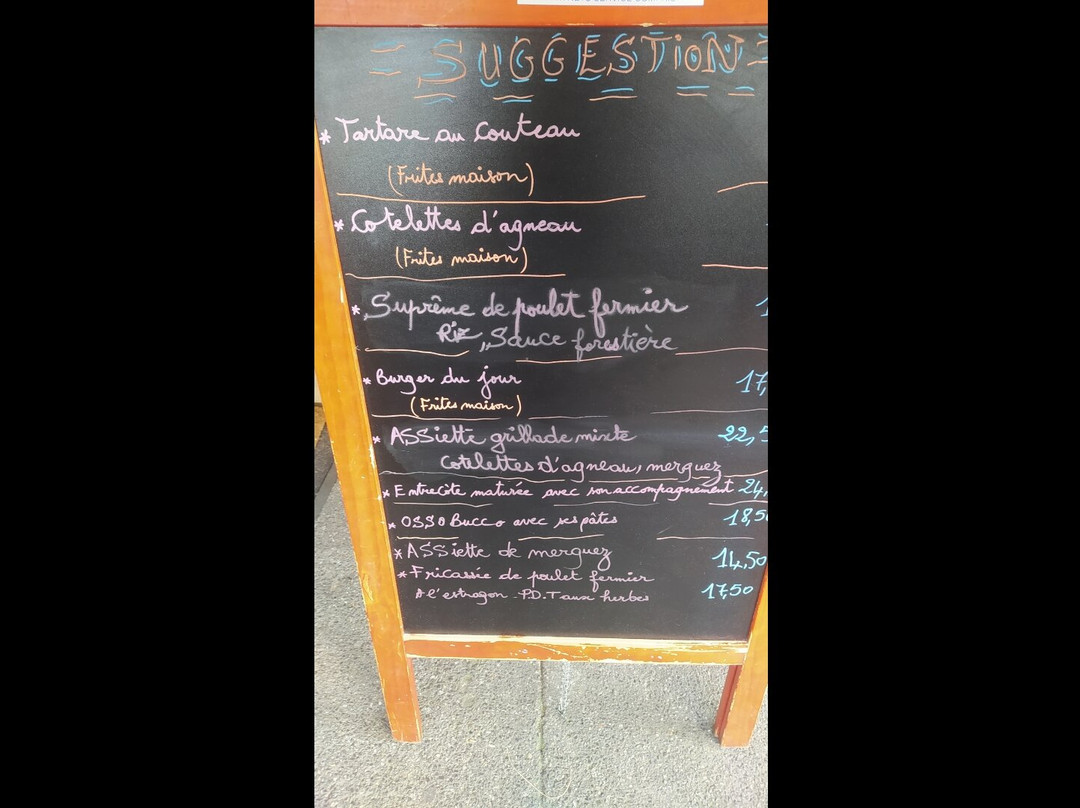 = SUGGESTION =
* Tartare au Couteau
(Frites maison)
* Cotelettes d'agneau
(Frites maison)
* Suprême de poulet fermier
Riz, Sauce forestière
* Burger du jour 17,
(Frites maison)
* ASSiette grillade mixte 22,5
Cotelettes d'agneau, merguez
* Entrecôte maturée avec son accompagnement 24,
* OSSO Bucco avec ses pâtes 18,50
* ASSiette de merguez 14,50
* Fricassée de poulet fermier
A l'estragon - P.D.T aux herbes 17,50